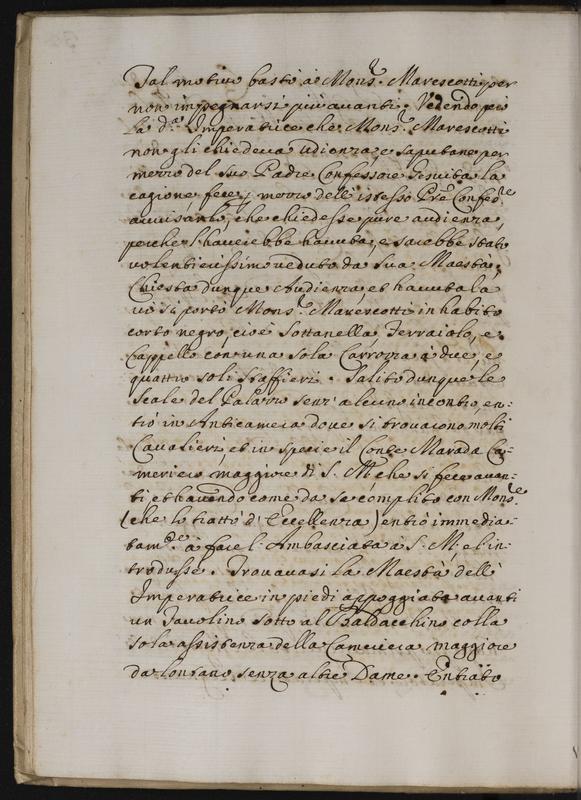 Tal motivo bastò à Mons.r Marescotti per
non impegnarsi più avanti. Vedendo poi
la d.a Imperatrice che Mons.r Marescotti
non gli chiedeva udienza, e saputane per
mezzo del suo Padre Confessore Gesuita la
cagione, fece p mezzo dell'istesso Pre Confes.re
avvisarlo, che chiedesse pure audienza,
perche l'haverebbe havuta, e sarebbe stato
volentierissimo veduto da Sua Maestà.
Chiesta dunque Audienza, et havutala
vi si portò Mons.r Marescotti in habito
corto negro, cioè sottanella, Ferraiolo, e
Cappello con una sola Carrozza à due, e
quattro soli staffieri. Salito dunque le
scale del Palazzo senz'alcuno incontro, en:
trò in Anticamera dove si trovarono molti
Cavalieri, et in specie il Conte Marada Ca=
meriero maggiore di S. M. che si fece avan-
ti et havendo come da se complito con Mons.re
(che lo trattò d'Eccellenza) entrò immedia-
tam.te à fare l'Ambasciata à S. M. e l'in:
trodusse. Trovavasi la Maestà dell'
Imperatrice in piedi appoggiata avanti
un Tavolino sotto al Baldacchino colla
sola assistenza della Cameriera maggiore
da lontano senza altre Dame. Entrato